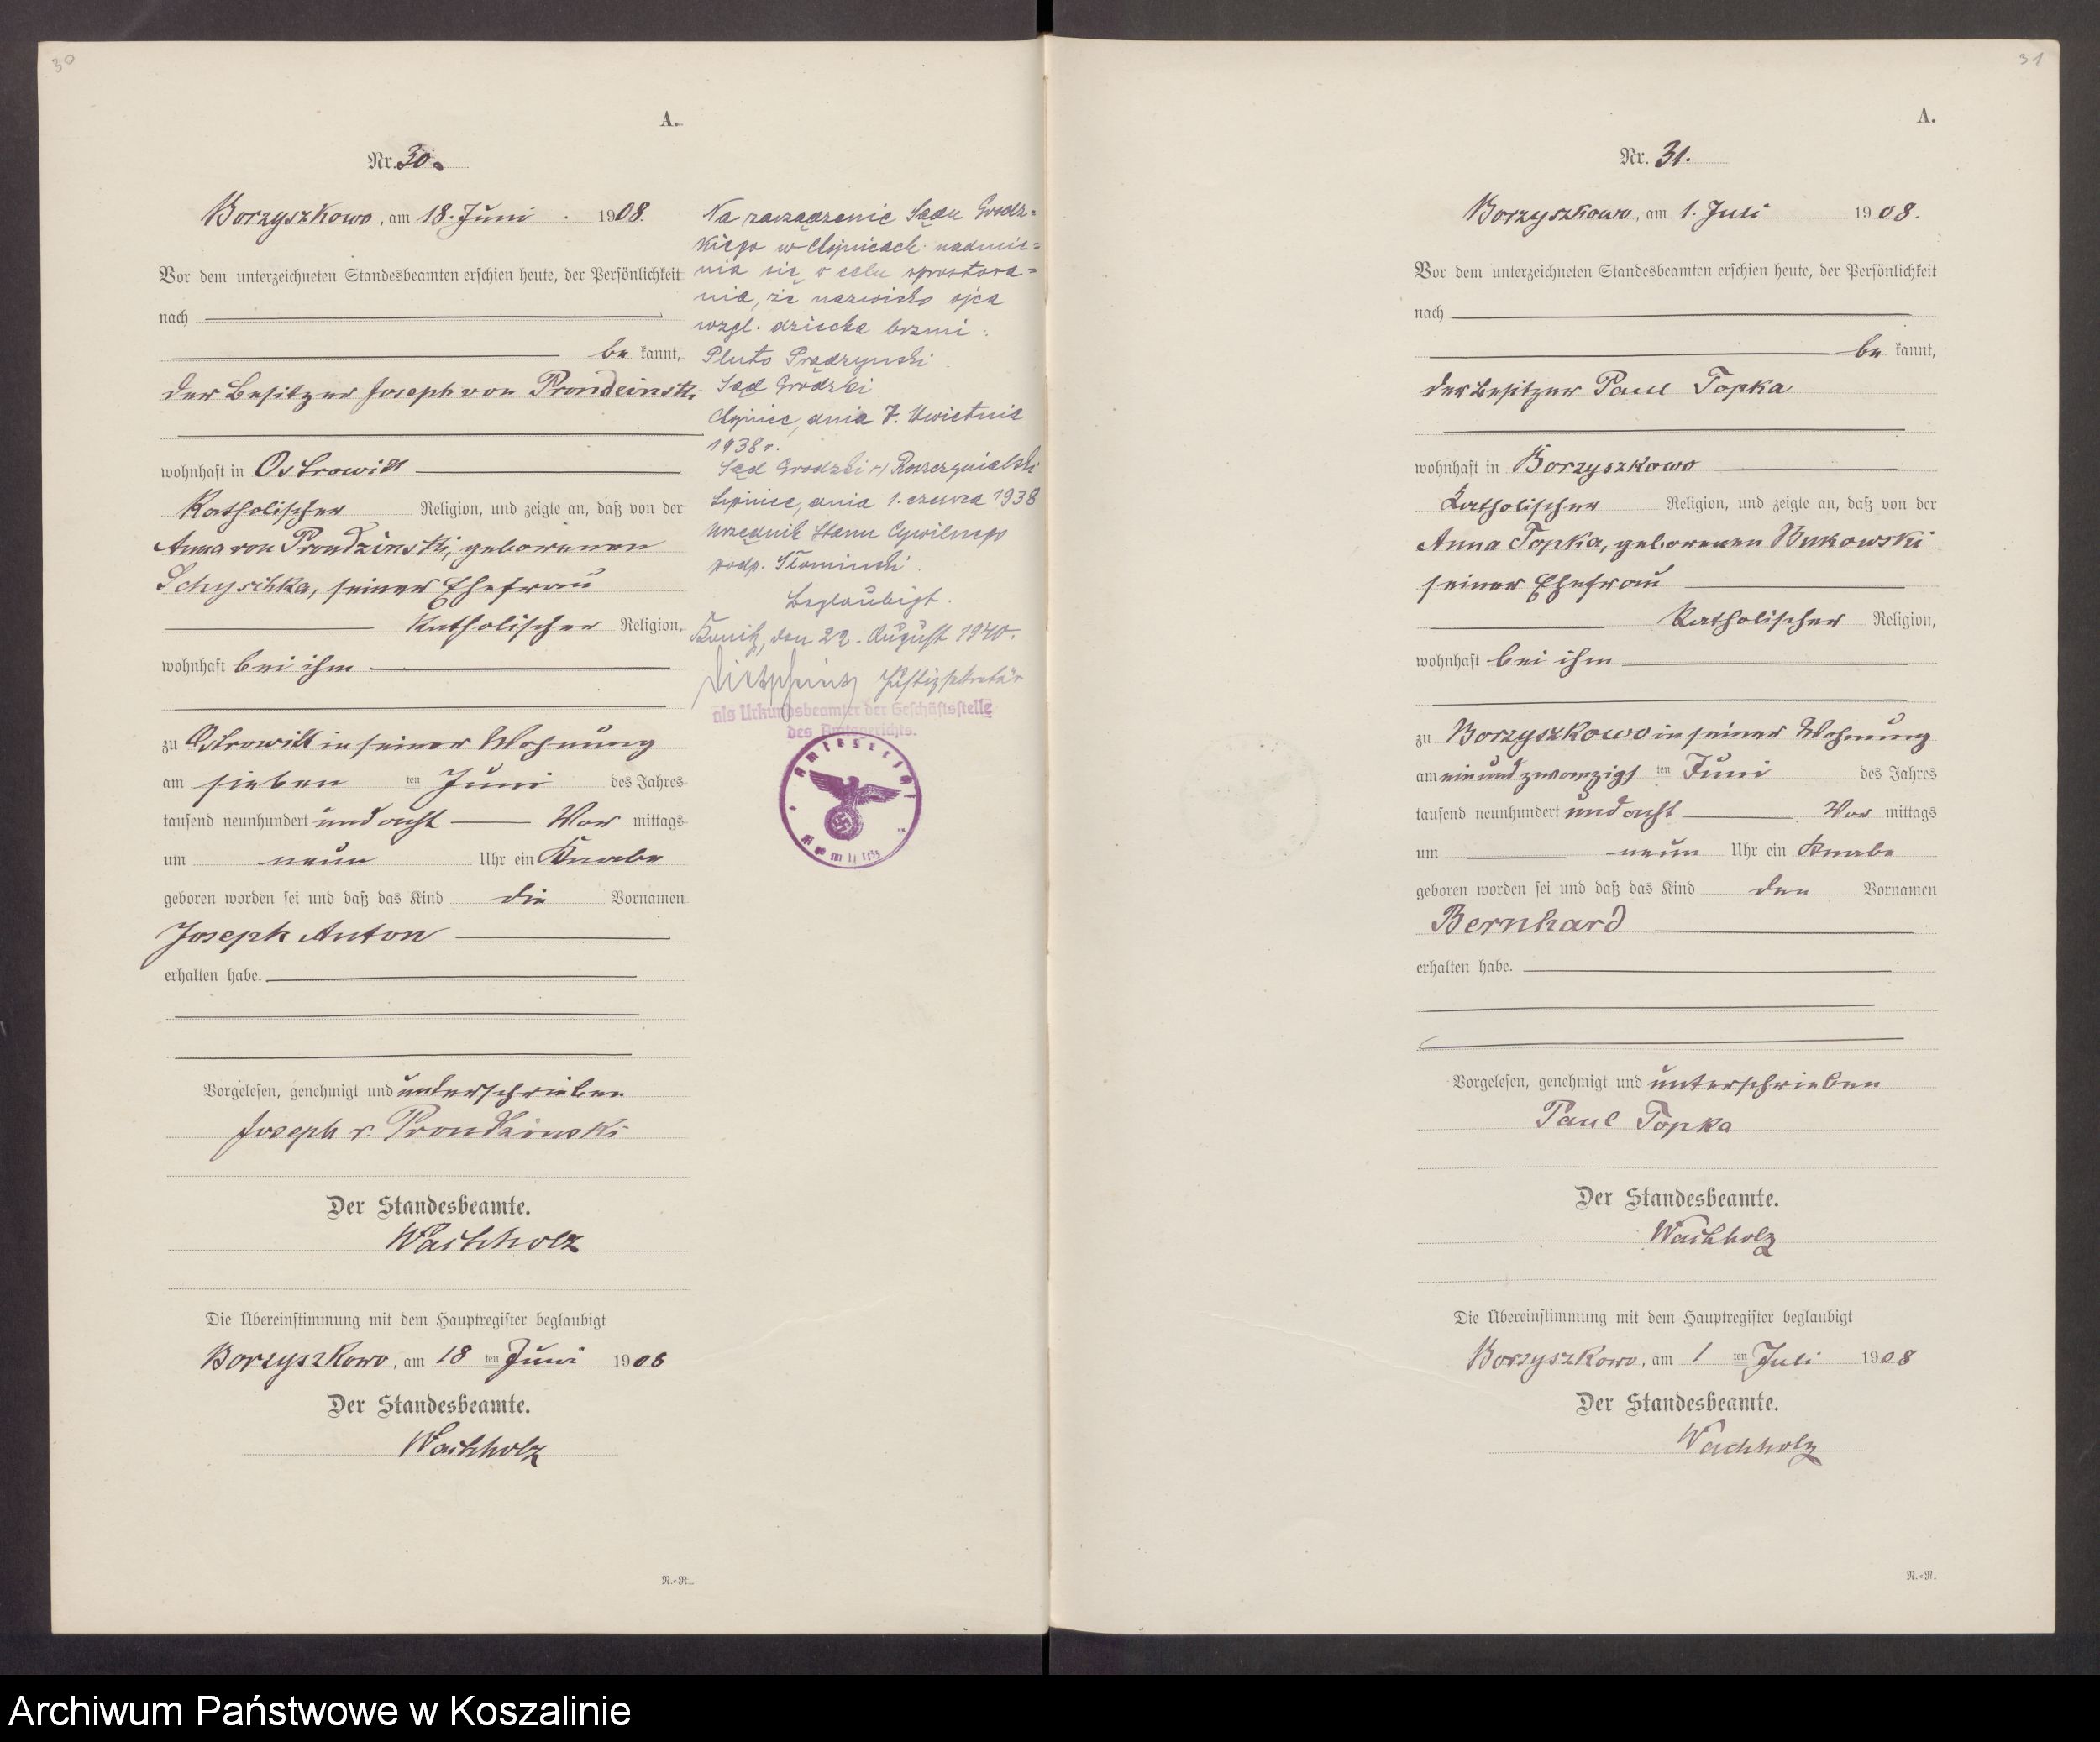 30
A.
Nr. 30.
Borzyszkowo, am 18. Juni 1908.
Vor dem unterzeichneten Standesbeamten erschien heute, der Persönlichkeit
nach
be kannt,
der Besitzer Joseph von Prondzinski
wohnhaft in Ostrowitt
Katholischer Religion, und zeigte an, daß von der
Anna von Prondzinski, geborenen
Schyschka, seiner Ehefrau
Katholischer Religion,
wohnhaft bei ihm
zu Ostrowitt in seiner Wohnung
am sieben ten Juni des Jahres
tausend neunhundert und acht Vor mittags
um neun Uhr ein Knabe
geboren worden sei und daß das Kind die Vornamen
Joseph Anton
erhalten habe.
Vorgelesen, genehmigt und unterschrieben
Joseph v. Prondzinski
Der Standesbeamte.
Wachholz
Die Übereinstimmung mit dem Hauptregister beglaubigt
Borzyszkowo, am 18 ten Juni 1908
Der Standesbeamte.
Wachholz
N.=R.
Na zarządzenie Sądu Grodz=
kiego w Chojnicach nadmie=
nia się w celu sprostowa=
nia, że nazwisko ojca
wzgl. dziecka brzmi:
Pluto Prądzynski
Sąd Grodzki
Chojnice, dnia 7. Kwietnia
1938 r.
Sąd Grodzki
Lipnice, dnia 1. czerwca 1938
Urzędnik Stanu Cywilnego
podp. Słominski
Beglaubigt.
Konitz, den 22. August 1940.
Justizsekretär
als Urkundsbeamter der Geschäftsstelle
des Amtsgerichts.
Amtsgericht
Konitz
31
A.
Nr. 31.
Borzyszkowo, am 1. Juli 1908.
Vor dem unterzeichneten Standesbeamten erschien heute, der Persönlichkeit
nach
be kannt,
der Besitzer Paul Topka
wohnhaft in Borzyszkowo
Katholischer Religion, und zeigte an, daß von der
Anna Topka, geborenen Bukowski
seiner Ehefrau
Katholischer Religion,
wohnhaft bei ihm
zu Borzyszkowo in seiner Wohnung
am ein und zwanzigs ten Juni des Jahres
tausend neunhundert und acht Vor mittags
um neun Uhr ein Knabe
geboren worden sei und daß das Kind den Vornamen
Bernhard
erhalten habe.
Vorgelesen, genehmigt und unterschrieben
Paul Topka
Der Standesbeamte.
Wachholz
Die Übereinstimmung mit dem Hauptregister beglaubigt
Borzyszkowo, am 1 ten Juli 1908
Der Standesbeamte.
Wachholz
N.=R.
Archiwum Państwowe w Koszalinie